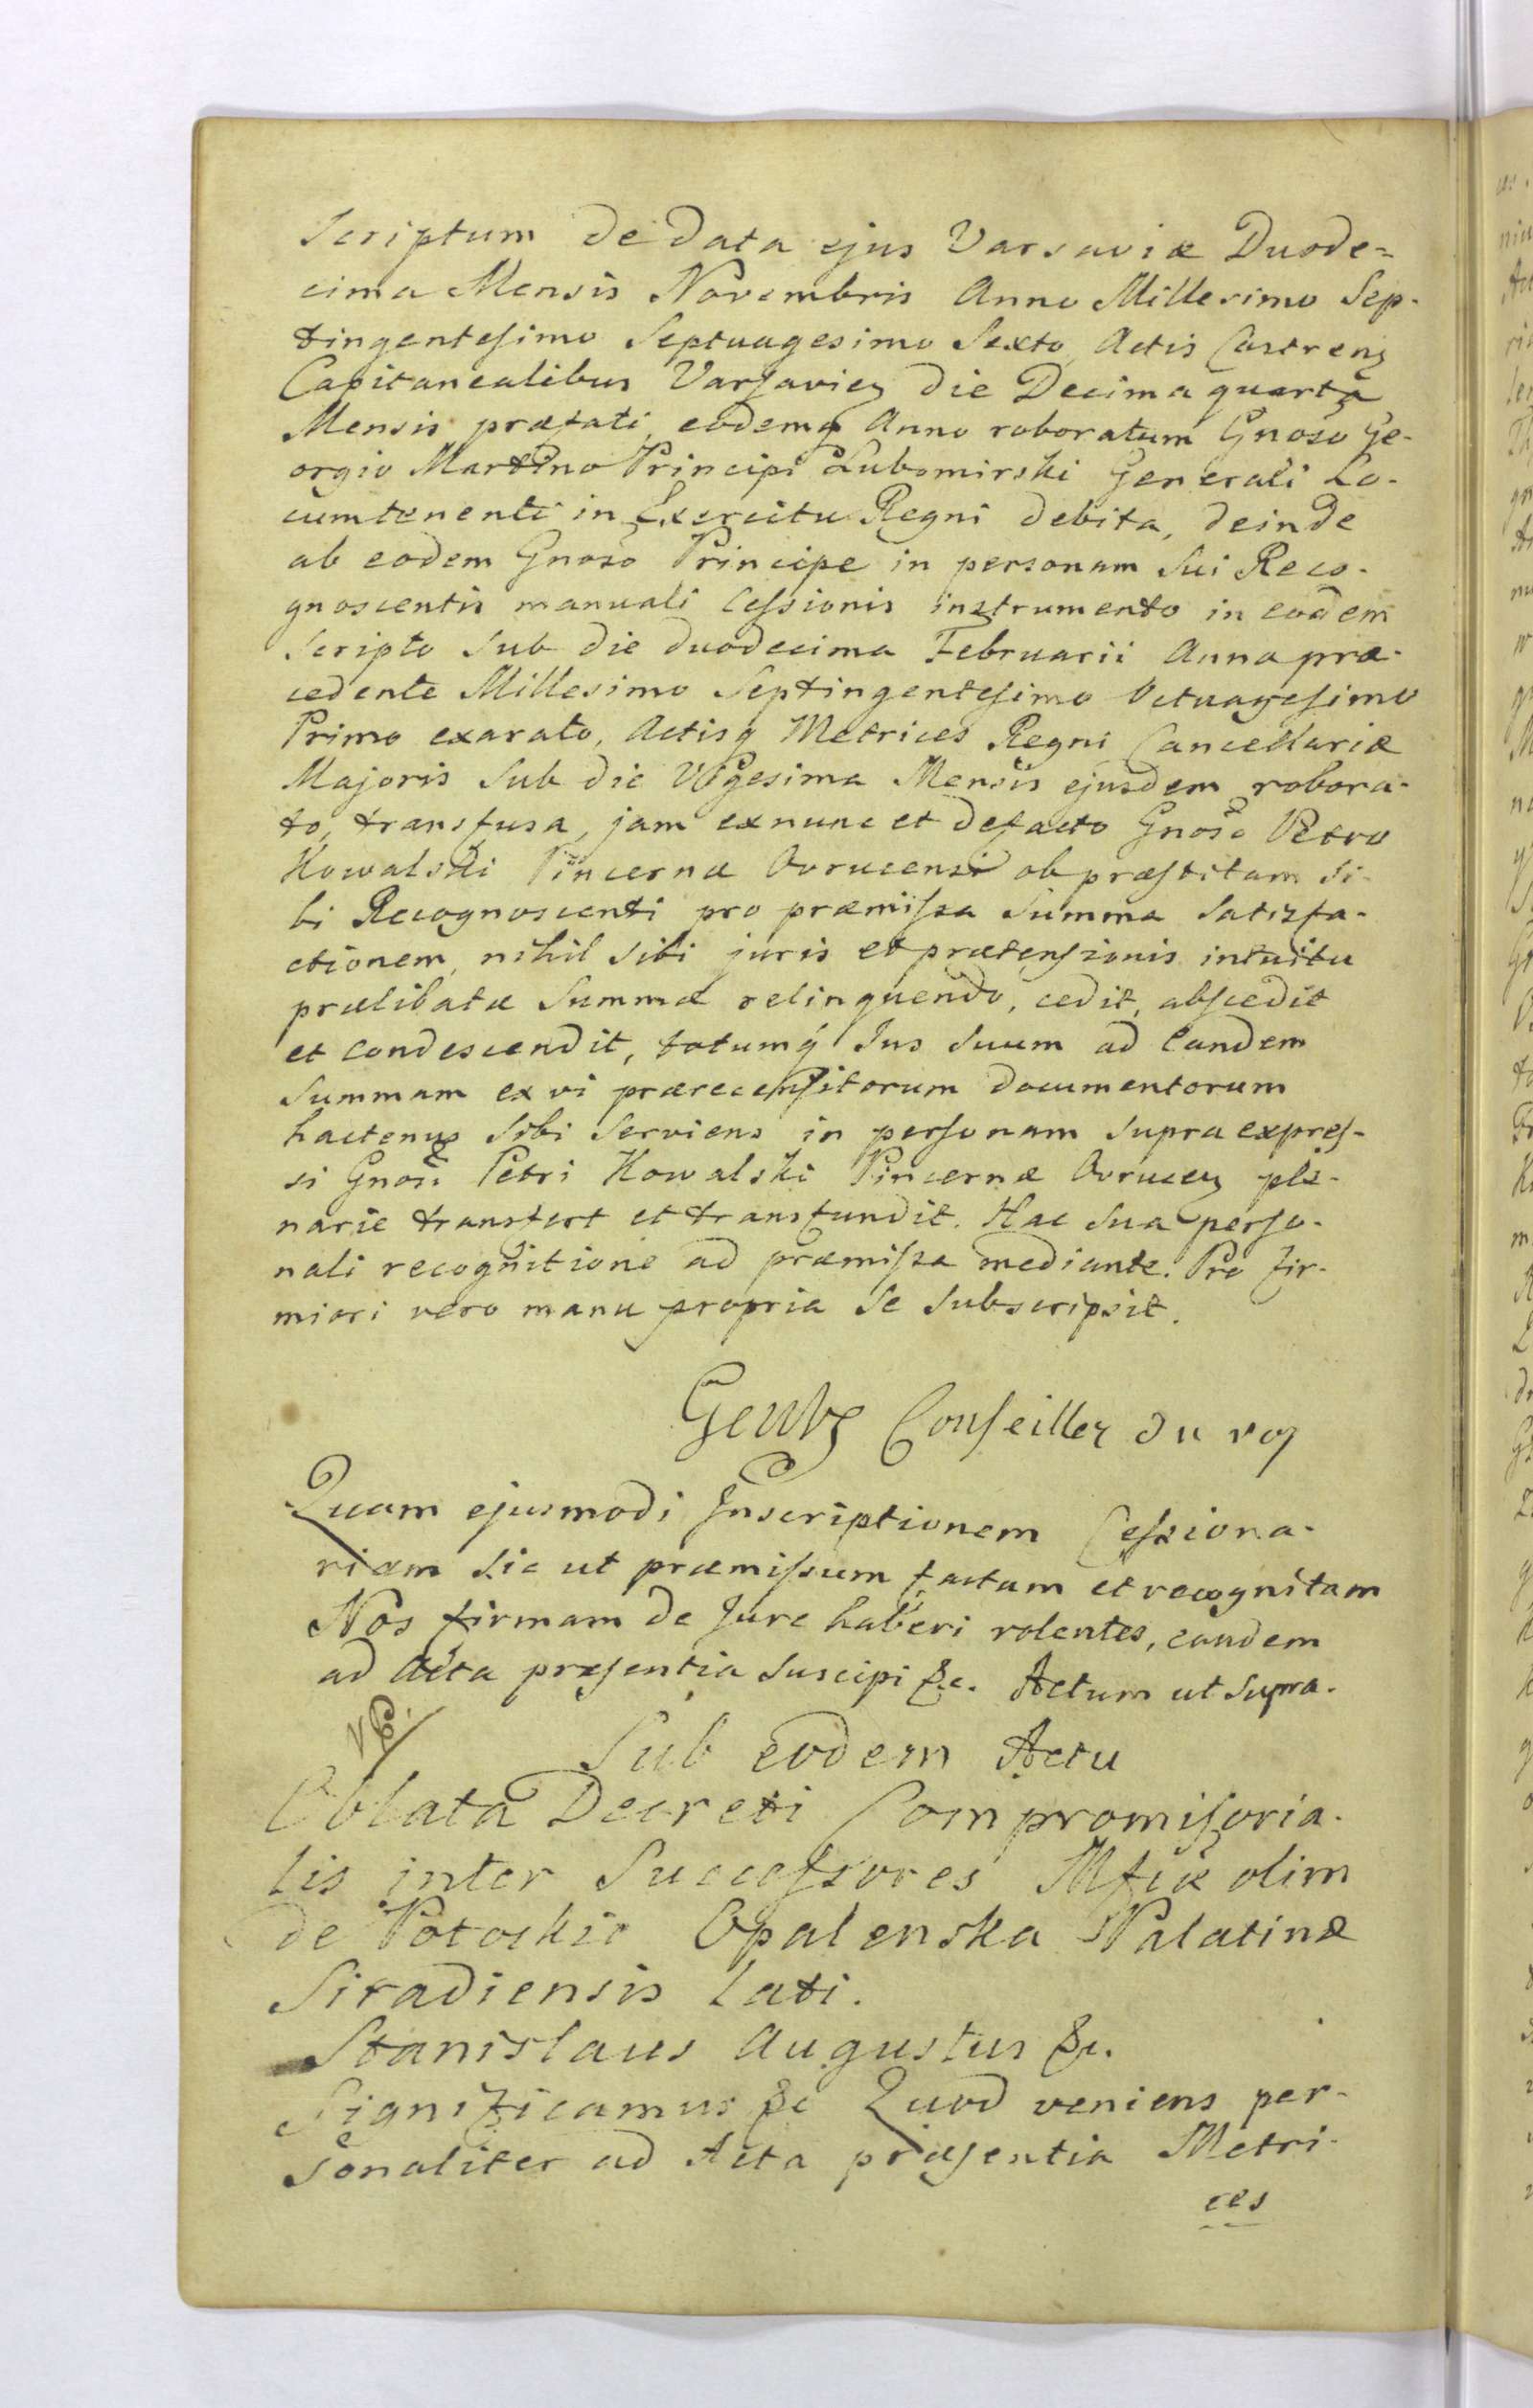 Scriptum de data ejus Varsaviæ Duode=
cima Mensis Novembris Anno Millesimo Sep-
tingentesimo Septuagesimo Sexto, Actis Castrenз
Capitanealibus Varsavienз die Decima quarta
Mensis præfati, eodemq Anno roboratum Gnoso Ge-
orgio Martino Principi Lubomirski Generali Lo-
cumtenenti in Exercitu Regni debita, deinde
ab eodem Gnoso Principe in personam Sui Reco-
gnoscentis manuali Cessionis instrumento in eodem
Scripto Sub die duodecima Februarii Anno præ-
cedente Millesimo Septingentesimo Octuagesimo
Primo exarato, Actisq Metrices Regni Cancellariæ
Majoris Sub die Vigesima Mensis ejusdem robora-
to, transfusa, jam exnunc et defacto Gnoso Petro
Kowalski Pincernæ Ovrucensi ob præstitam Si-
bi Recognoscenti pro præmissa Summa Satisfa-
ctionem, nihil Sibi juris et prætensionis intuitu
prælibatæ Summæ relinquendo, cedit, abscedit
et condescendit, totumq Jus Suum ad Eandem
Summam ex vi præreceusitorum documentorum
hactenus Sibi Serviens in personam Supra expres-
si Gnosi Petri Kowalski Pincernæ Ovrucenз ple-
narie transfert et transfundit. Hac Sua perso-
nali recognitione ad præmissa mediante. Pro fir-
miori vero manu propria Se Subscripsit.
Conseiller du roy
Quam ejusmodi Inscriptionem Cessiona-
riam Sic ut præmissum factam et recognitam
Nos firmam de Jure haberi volentes, eandem
ad Acta præsentia Suscipi &c. Actum ut Supra.
Sub eodem Actu
Oblata Decreti Compromisoria-
lis inter Successores Mficæ olim
de Potockie Opalenska Palatinæ
Siradiensis Lati.
Stanislaus Augustus &c.
Significamus &c Quod veniens per-
sonaliter ad Acta præsentia Metri-
ces